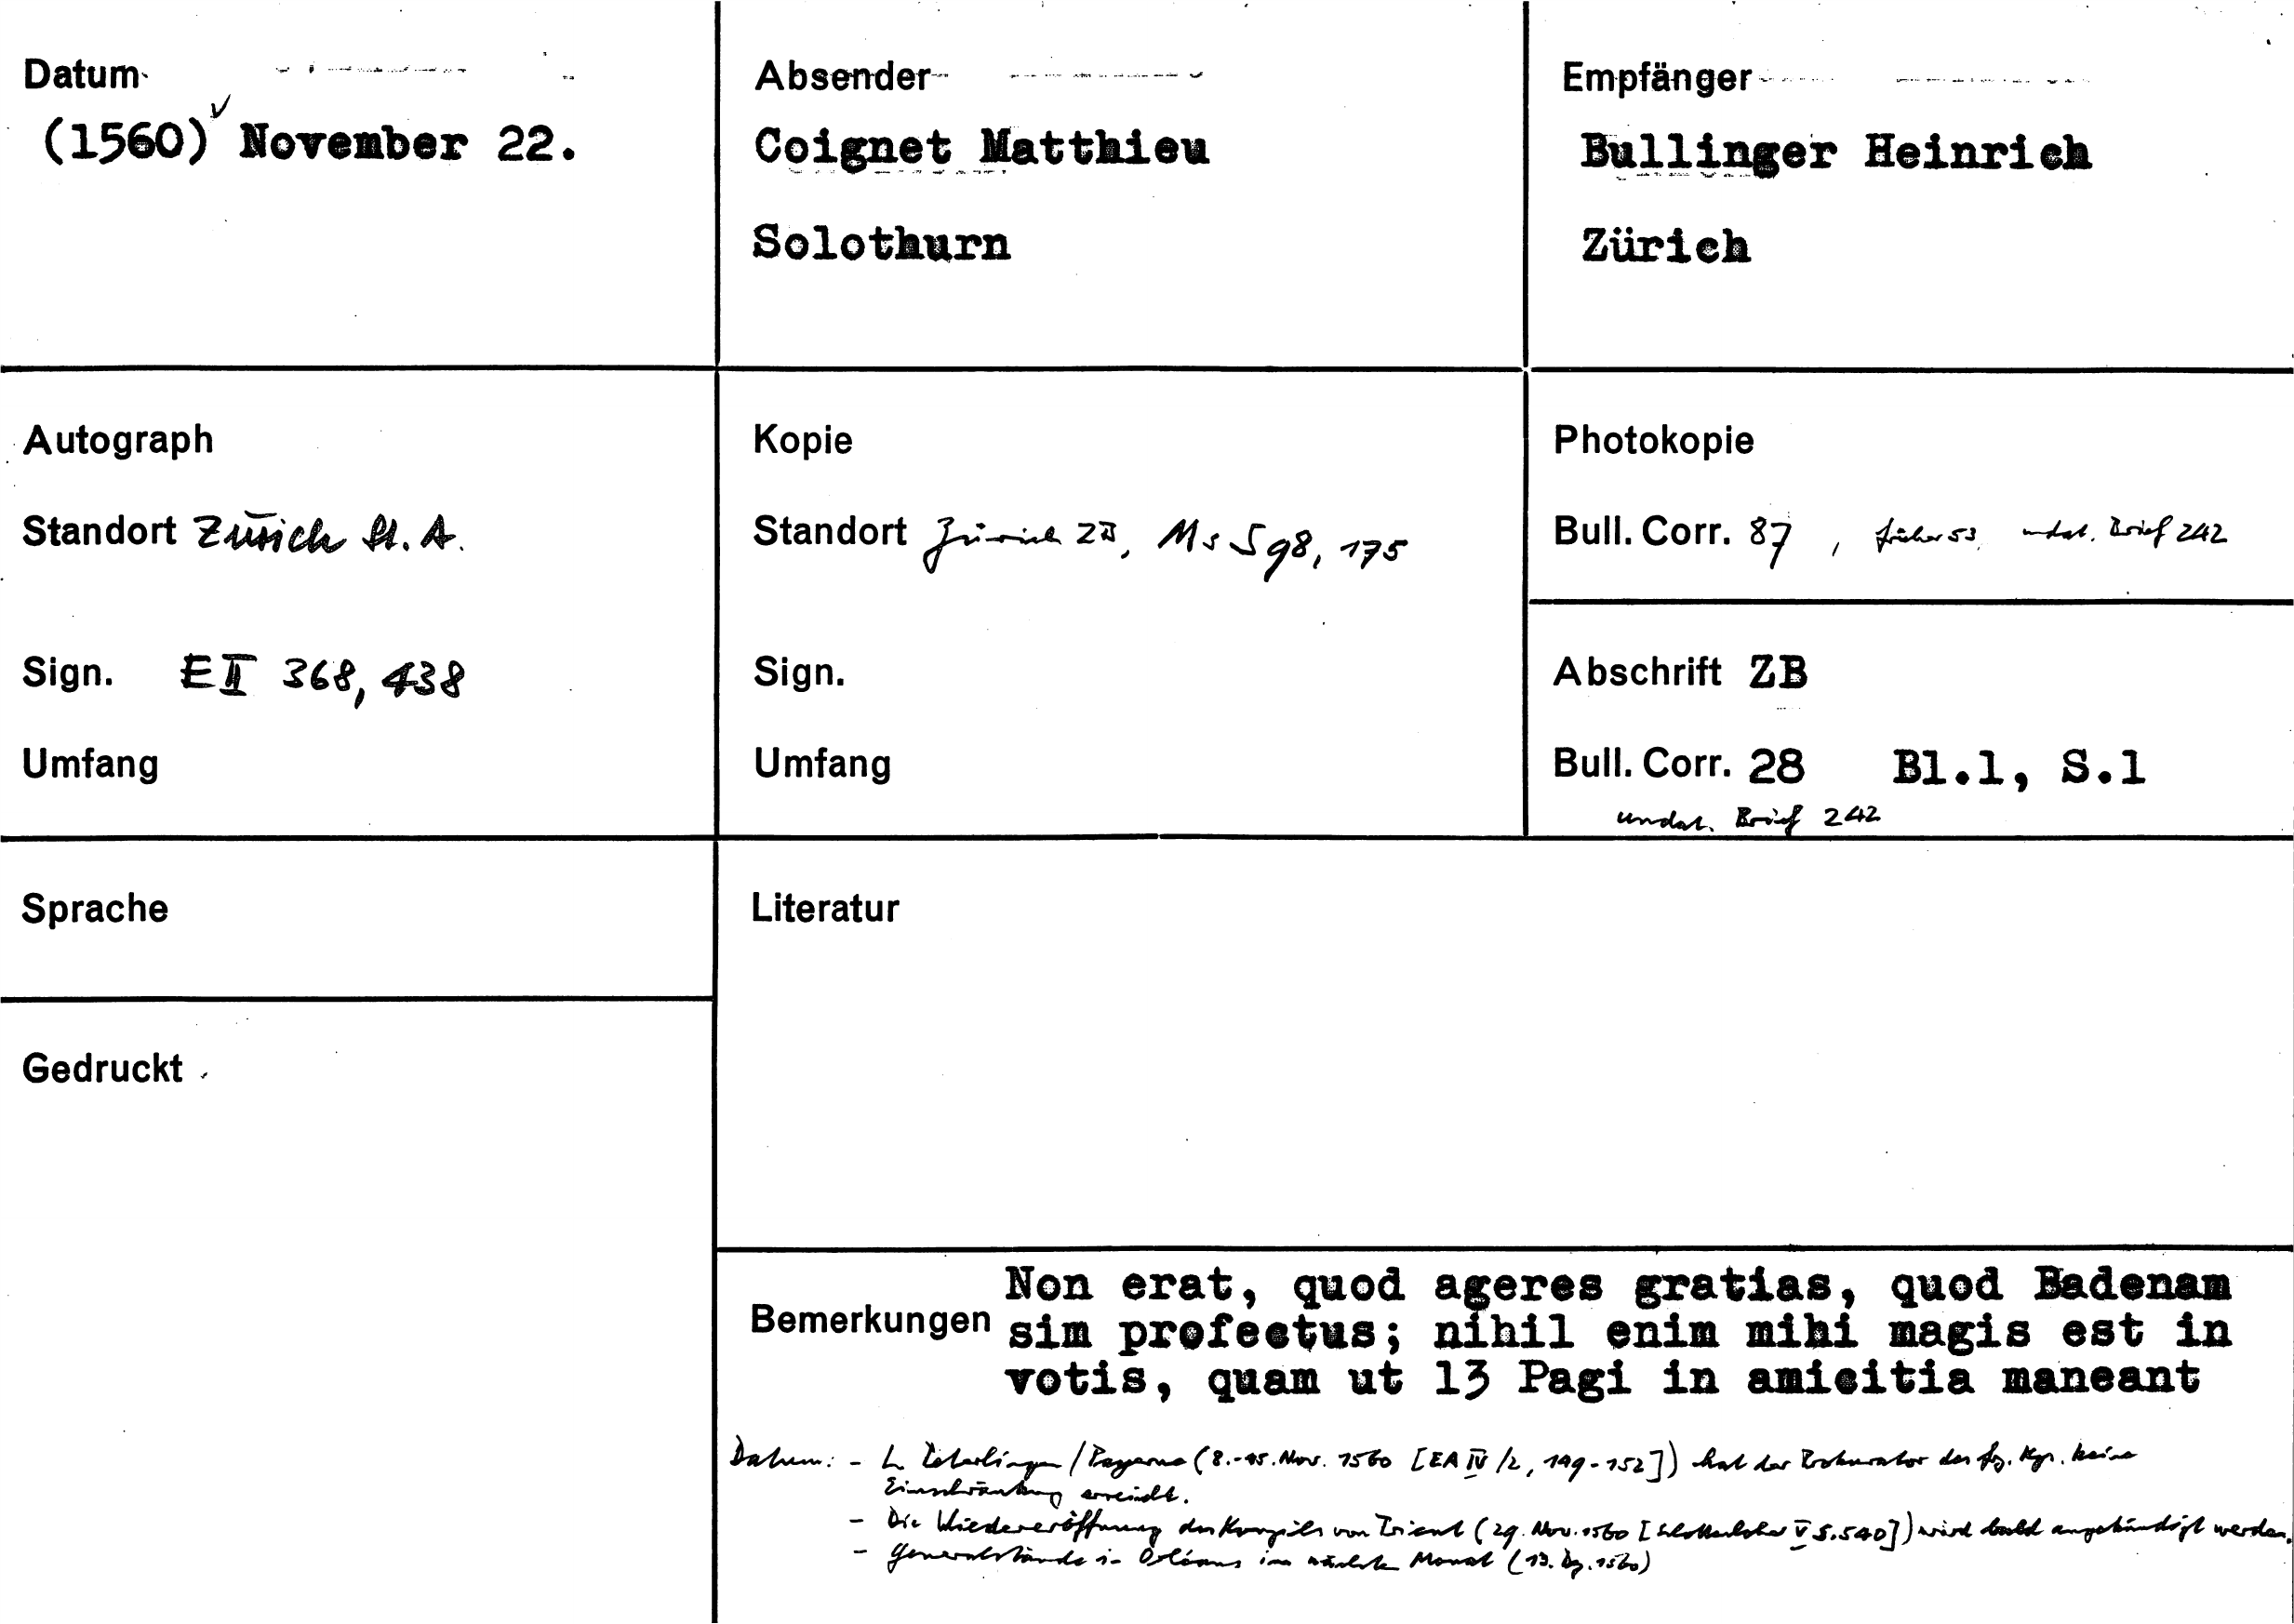 Datum
(1560) November 22.
Absender
Coignet Matthieu
Solothurn
Empfänger
Bullinger Heinrich
Zürich
Autograph
Standort Zürich St. A.
Sign. E II 368, 438
Umfang
Kopie
Standort Zürich ZB, Ms S 98, 175
Sign.
Umfang
Photokopie
Bull. Corr. 87, früher 53, undat. Brief 242
Abschrift ZB
Bull. Corr. 28 Bl.1, S.1
undat. Brief 242
Sprache
Gedruckt
Literatur
Bemerkungen
Non erat, quod ageres gratias, quod Badenam
sim profectus; nihil enim mihi magis est in
votis, quam ut 13 Pagi in amicitia maneant
Datum: - In Peterlingen/Payerne (8.-15. Nov. 1560 [EA IV/2, 149-152]) hat der Prokurator des fz. Kgs. keine
Einschränkung erreicht.
- Die Wiedereröffnung des Konzils von Trient (29. Nov. 1560 [Schottenloher V S.540]) wird bald angekündigt werden.
- Generalstände in Orléans im nächsten Monat (13. Dz. 1560)